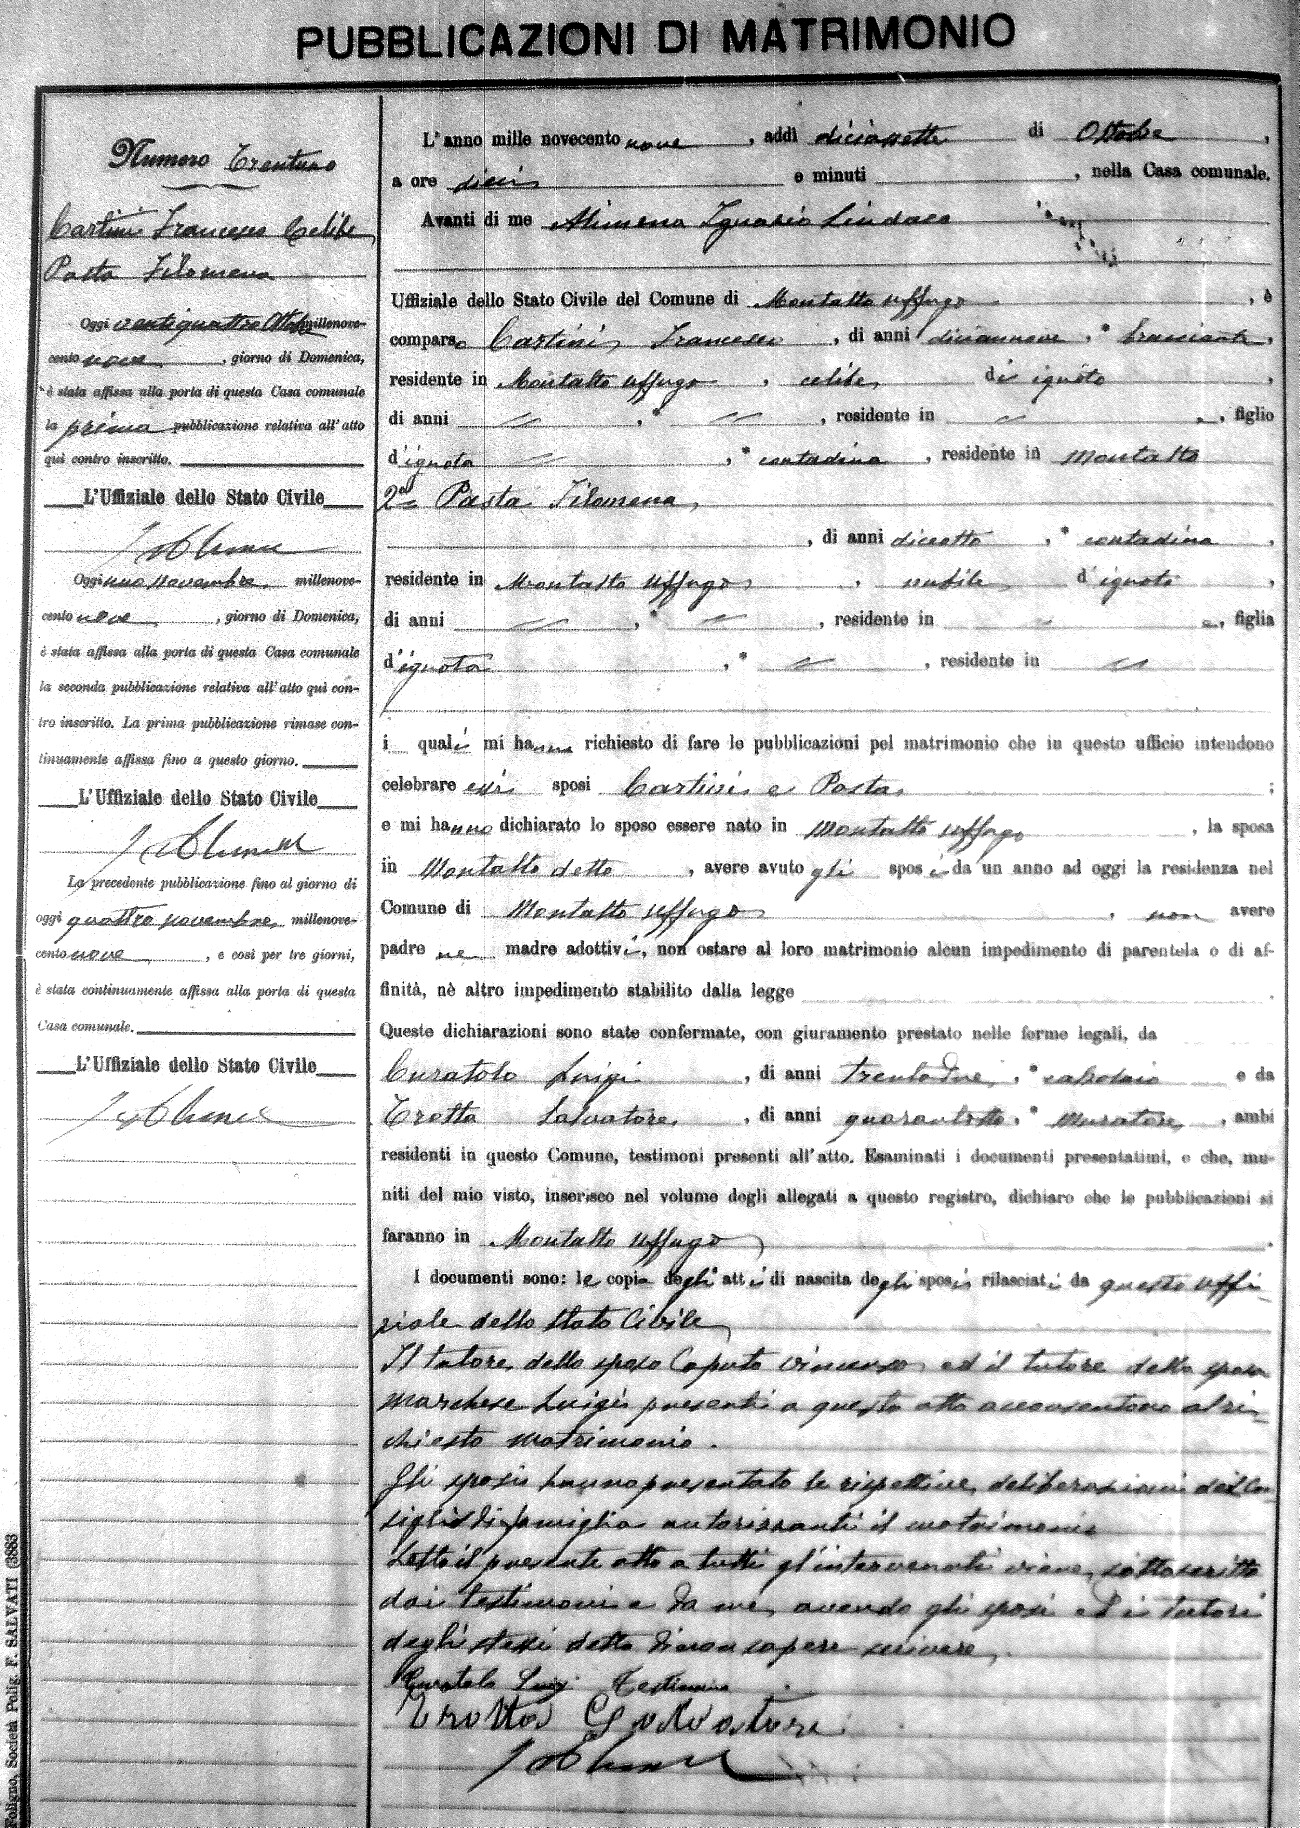 PUBBLICAZIONI DI MATRIMONIO
Numero Trentuno
Cartini Francesco Celibe
Pasta Filomena
Oggi ventiquattro Ottobre millenove-
cento nove, giorno di Domenica,
è stata affissa alla porta di questa Casa comunale
la prima pubblicazione relativa all'atto
quì contro inscritto.
L'Uffiziale dello Stato Civile
Oggi uno novembre millenove-
cento nove, giorno di Domenica,
è stata affissa alla porta di questa Casa comunale
la seconda pubblicazione relativa all'atto quì con-
tro inscritto. La prima pubblicazione rimase con-
tinuamente affissa fino a questo giorno.
L'Uffiziale dello Stato Civile
La precedente pubblicazione fino al giorno di
oggi quattro novembre millenove-
cento nove, e così per tre giorni,
è stata continuamente affissa alla porta di questa
Casa comunale.
L'Uffiziale dello Stato Civile
Foligno, Società Polig. F. SALVATI (3883
L'anno mille novecento nove, addì diciassette di Ottobre,
a ore dieci e minuti , nella Casa comunale.
Avanti di me Alimena Ignazio Sindaco
Uffiziale dello Stato Civile del Comune di Montalto Uffugo, è
comparso Cartini Francesco, di anni diciannove, * bracciante,
residente in Montalto Uffugo, celibe di ignoto,
di anni " , * " , residente in " , figlio
d'ignota " , * contadina, residente in Montalto
2° Pasta Filomena,
, di anni diciotto, * contadina,
residente in Montalto Uffugo, nubile d'ignoto,
di anni " , * " , residente in " , figlia
d'ignota , * " , residente in "
i quali mi hanno richiesto di fare le pubblicazioni pel matrimonio che in questo ufficio intendono
celebrare essi sposi Cartini e Pasta;
e mi hanno dichiarato lo sposo essere nato in Montalto Uffugo, la sposa
in Montalto detto, avere avuto gli sposi da un anno ad oggi la residenza nel
Comune di Montalto Uffugo, non avere
padre ne madre adottivi, non ostare al loro matrimonio alcun impedimento di parentela o di af-
finità, nè altro impedimento stabilito dalla legge .
Queste dichiarazioni sono state confermate, con giuramento prestato nelle forme legali, da
Curatolo Luigi, di anni trentadue, * calzolaio e da
Trotta Salvatore, di anni quarantotto, * Muratore, ambi
residenti in questo Comune, testimoni presenti all'atto. Esaminati i documenti presentatimi, e che, mu-
niti del mio visto, inserisco nel volume degli allegati a questo registro, dichiaro che le pubblicazioni si
faranno in Montalto Uffugo.
I documenti sono: le copie degli atti di nascita degli sposi rilasciati da questo uffi-
ziale dello Stato Civile
Il tutore dello sposo Caputo Vincenzo ed il tutore della sposa
Marchese Luigi presenti a questo atto acconsentono al ri-
chiesto matrimonio.
Gli sposi hanno presentato le rispettive deliberazioni del Con-
siglio di famiglia autorizzanti il matrimonio
Letto il presente atto a tutti gl'intervenuti viene sottoscritto
dai testimoni e da me, avendo gli sposi ed i tutori
degli stessi detto di non sapere scrivere.
Curatolo Luigi Testimone
Trotta Salvatore